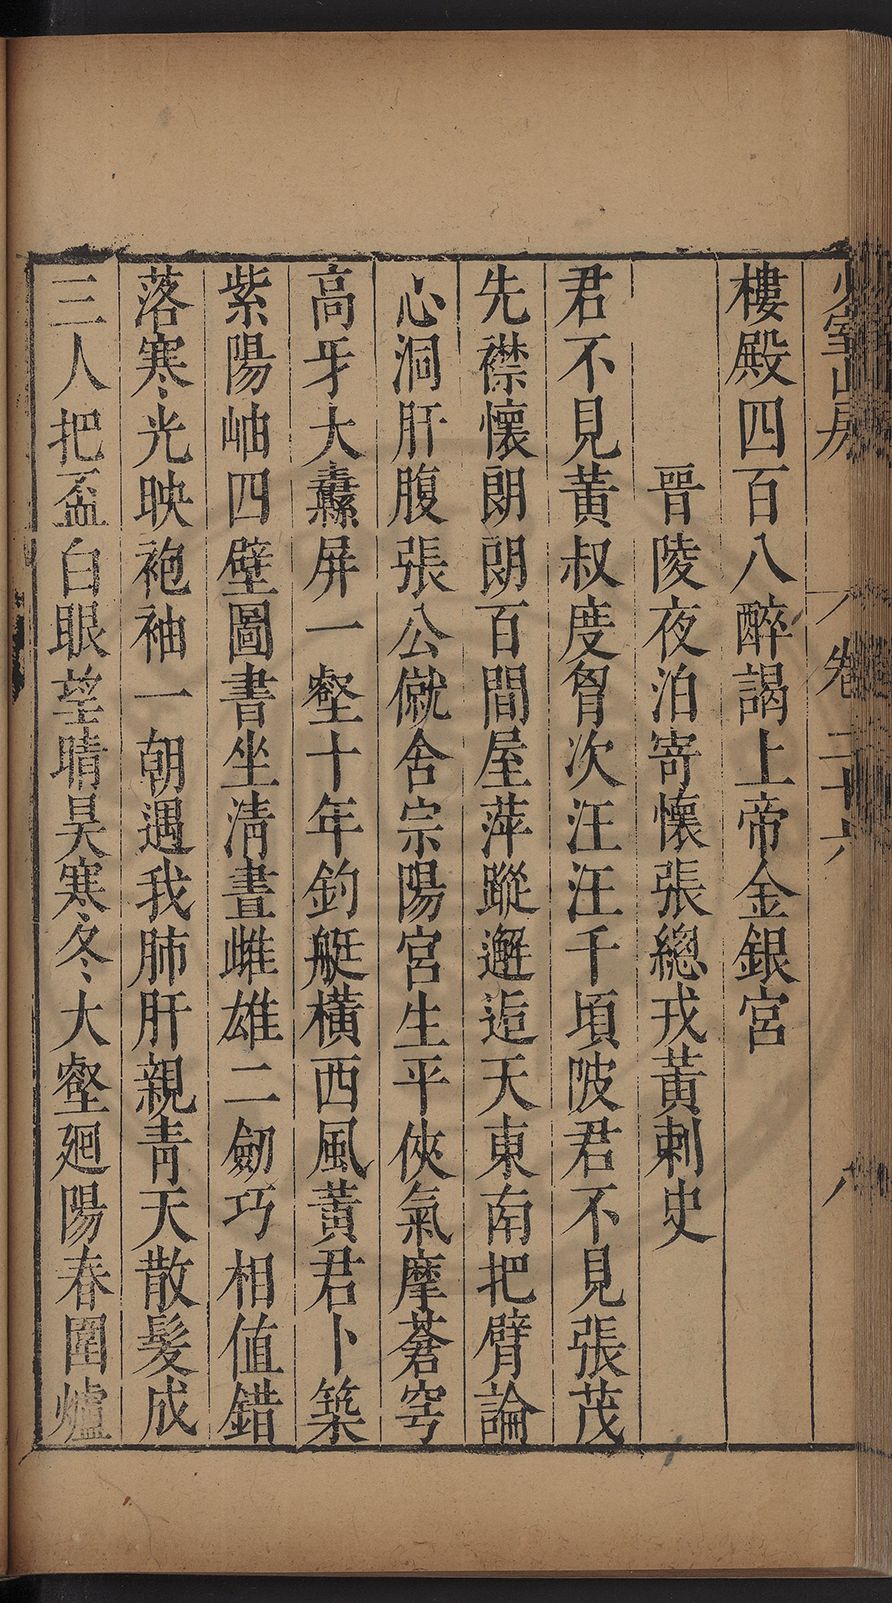 少室山房 卷二十六 八
樓殿四百八醉謁上帝金銀宮
晉陵夜泊寄懷張總戎黃刺史
君不見黃叔度胷次汪汪千頃陂君不見張茂
先襟懷朗朗百間屋萍蹤邂逅天東南把臂論
心洞肝腹張公僦舍宗陽宮生平俠氣摩蒼穹
高牙大纛屏一壑十年釣艇橫西風黃君卜築
紫陽岫四壁圖書坐清晝雌雄二劒巧相值錯
落寒光映袍袖一朝遇我肺肝親青天散髮成
三人把盃白眼望晴昊寒冬大壑廻陽春圍爐